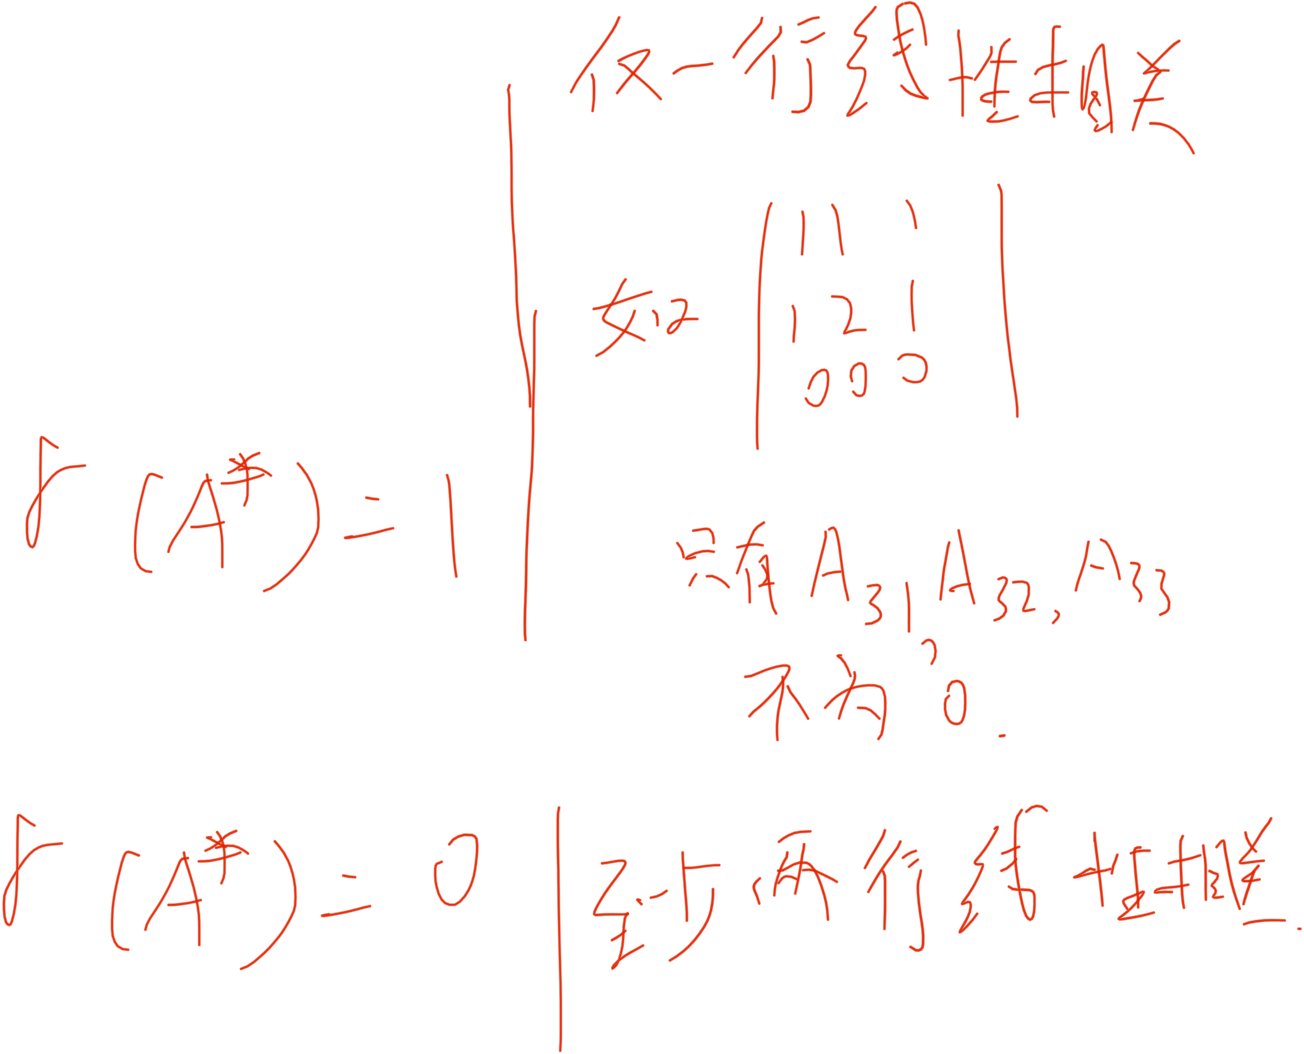 仅一行线性相关
如 1 1 1
1 2 1
0 0 0
r(A*)=1
只有 A31, A32, A33
不为0.
r(A*)=0 至少两行线性相关.